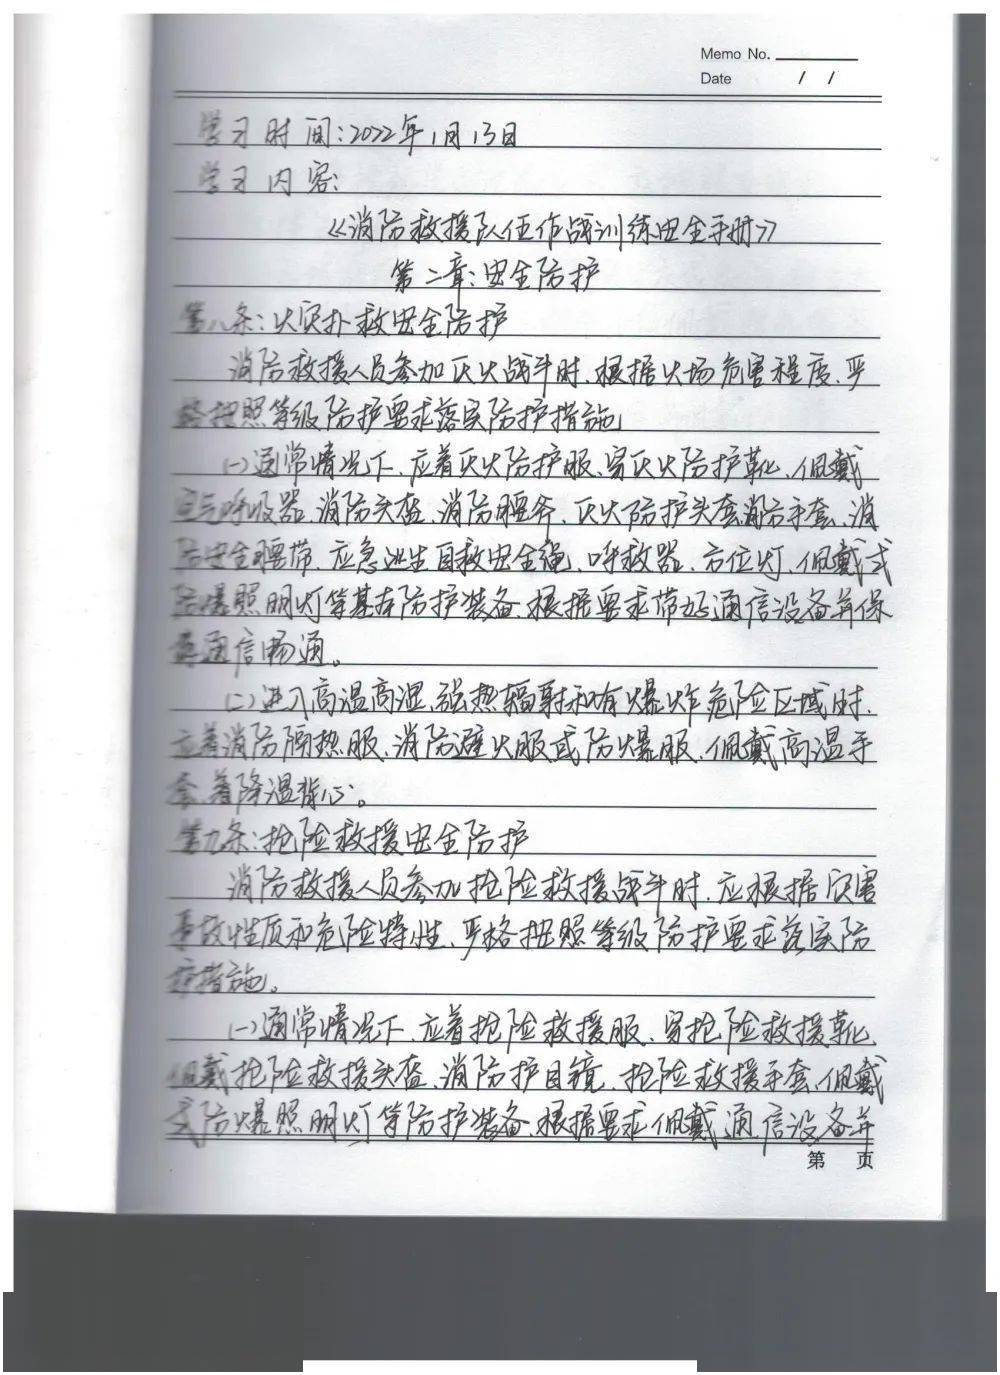 Memo No.
Date / /
学习时间:2022年1月13日
学习内容:
《消防救援队伍作战训练安全手册》
第二章:安全防护
第八条:火灾扑救安全防护
消防救援人员参加灭火战斗时、根据火场危害程度、严
格按照等级防护要求落实防护措施
(一)通常情况下、应着灭火防护服、穿灭火防护靴、佩戴
空气呼吸器、消防头盔、消防腰斧、灭火防护头套、消防手套、消
防安全腰带、应急逃生自救安全绳、呼救器、方位灯、佩戴式
防爆照明灯等基本防护装备、根据要求带好通信设备并保
持通信畅通。
(二)进入高温高湿、强热辐射和有爆炸危险区域时、
应着消防隔热服、消防避火服或防爆服、佩戴高温手
套、着降温背心。
第九条:抢险救援安全防护
消防救援人员参加抢险救援战斗时、应根据灾害
事故性质和危险特性、严格按照等级防护要求落实防
护措施。
(一)通常情况下、应着抢险救援服、穿抢险救援靴、
佩戴抢险救援头盔、消防护目镜、抢险救援手套、佩戴
式防爆照明灯等防护装备、根据要求佩戴通信设备并
第 页